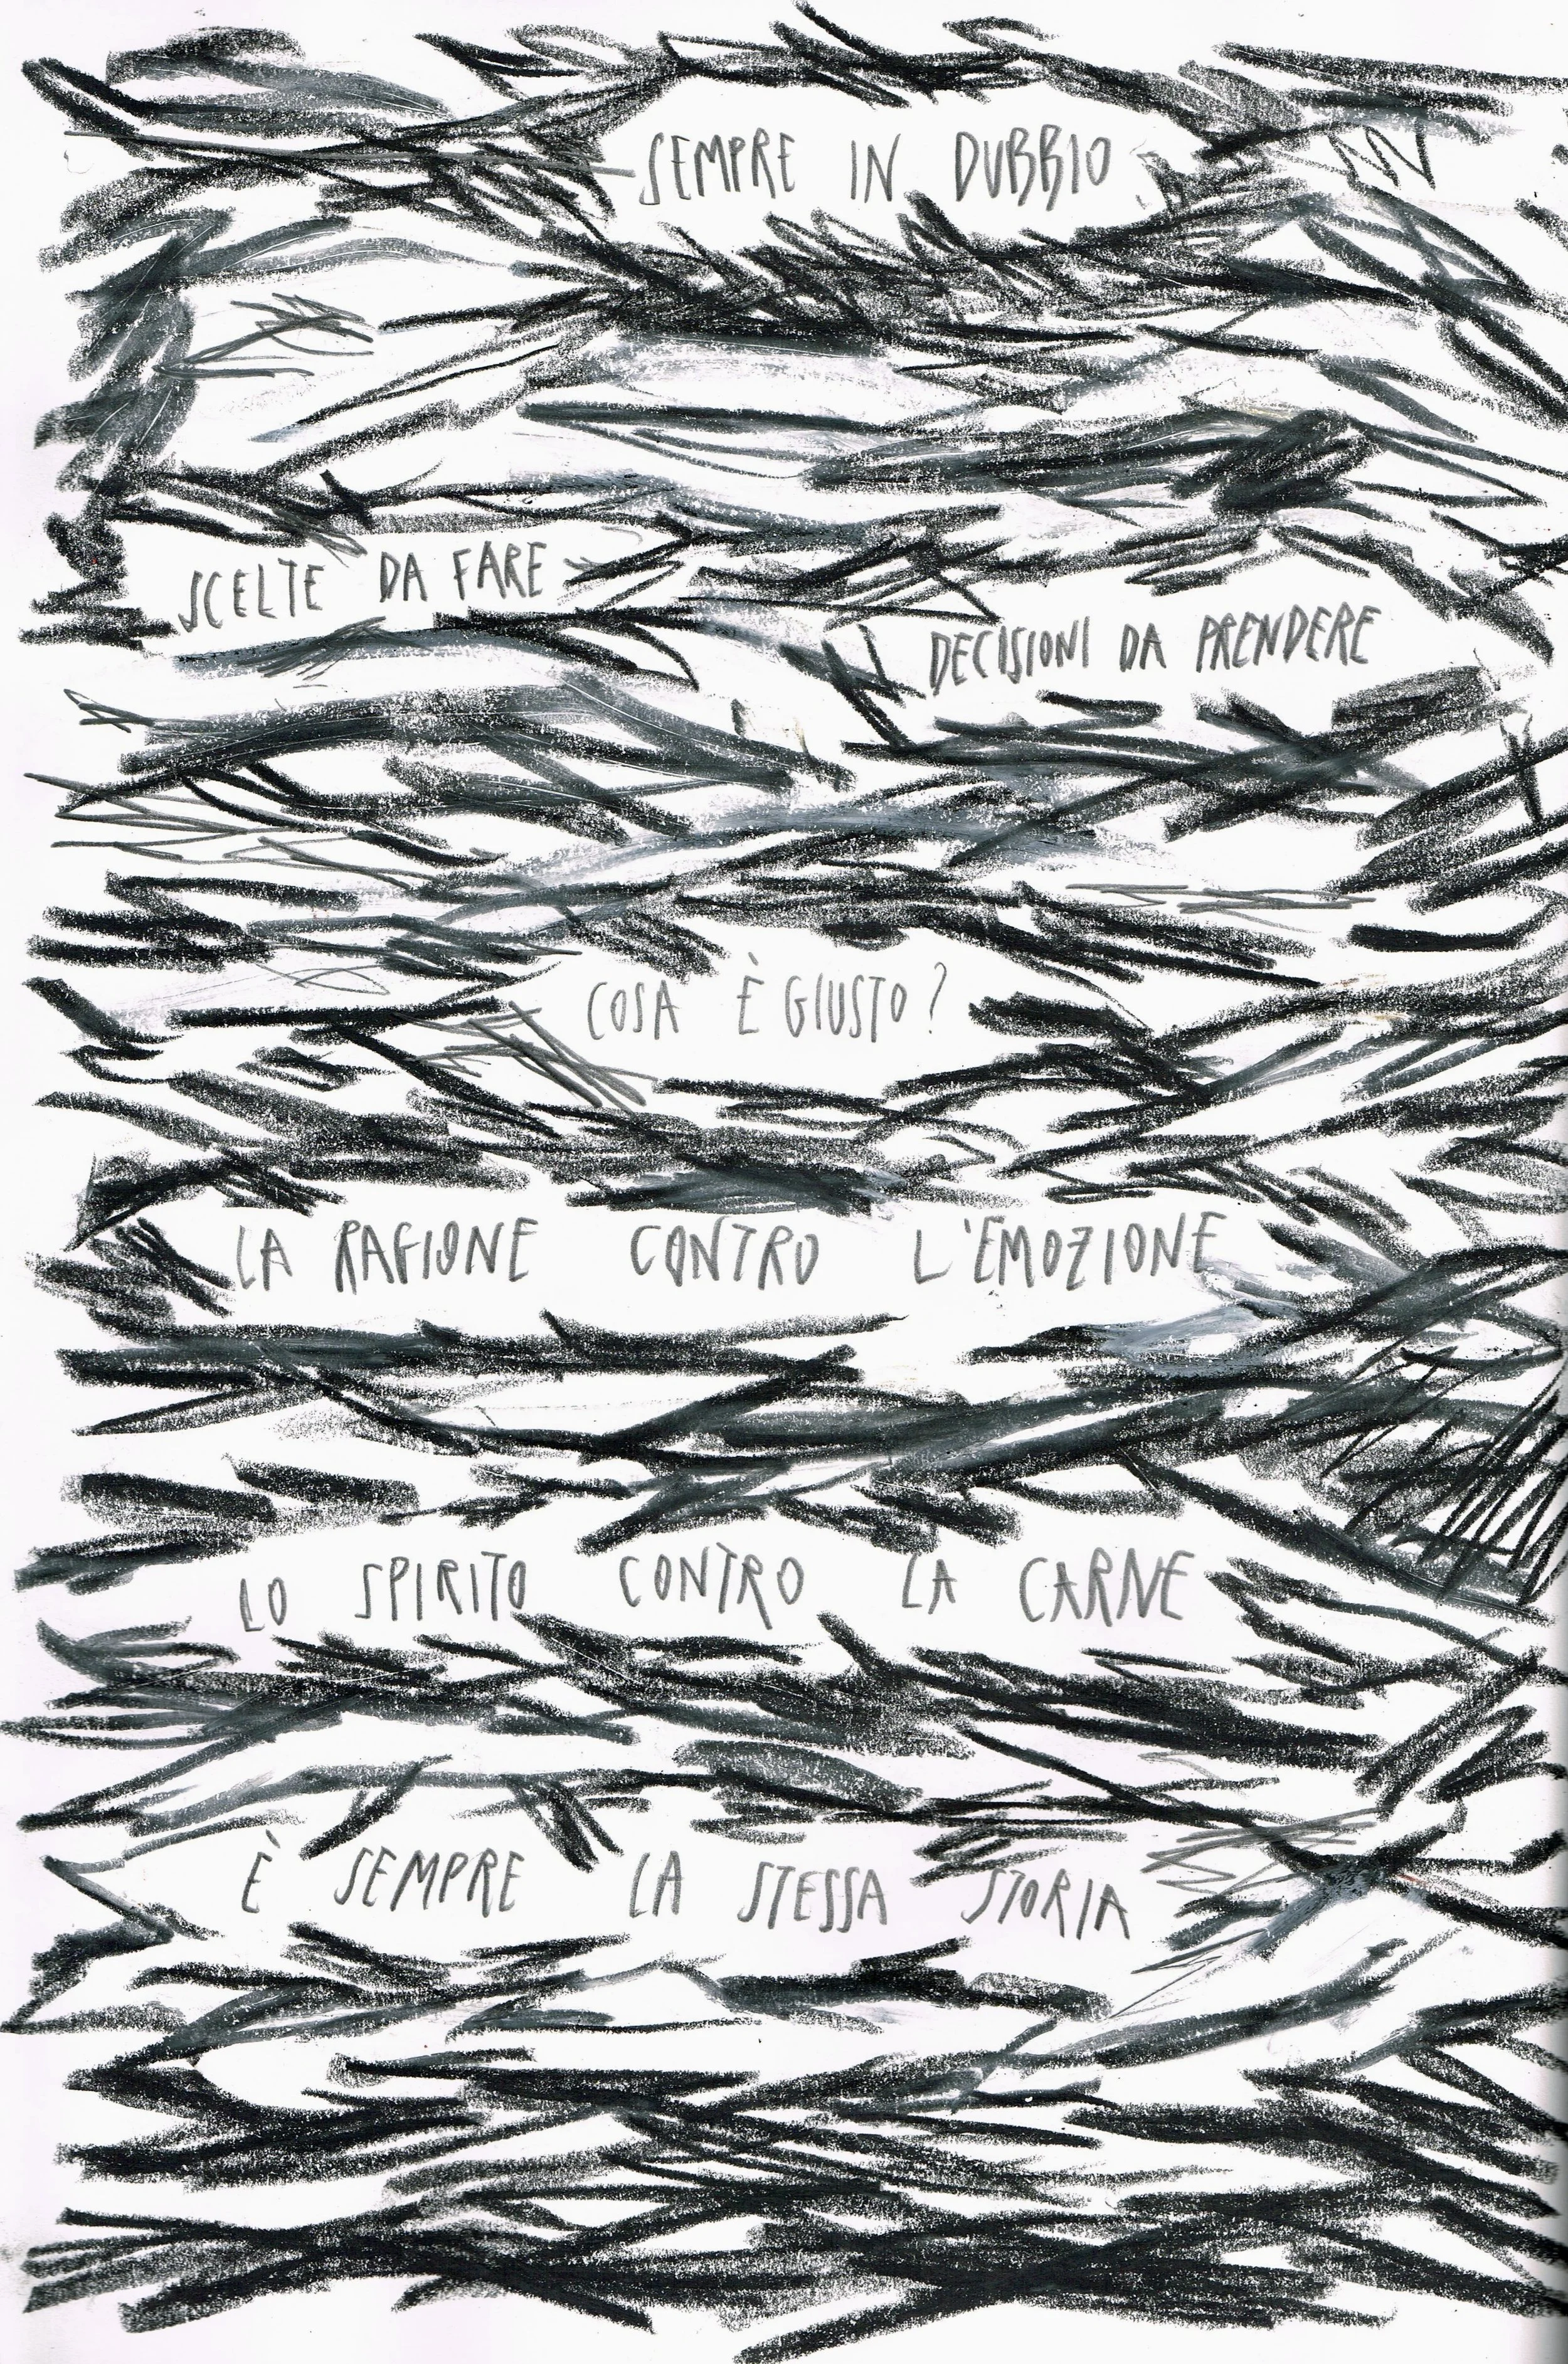 SEMPRE IN DUBBIO
SCELTE DA FARE
DECISIONI DA PRENDERE
COSA È GIUSTO?
LA RAGIONE CONTRO L'EMOZIONE
LO SPIRITO CONTRO LA CARNE
È SEMPRE LA STESSA STORIA